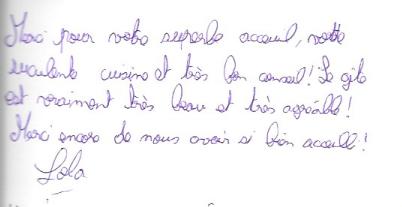 Merci pour votre superbe accueil, votre
succulente cuisine et très bon conseil! Le gîte
est vraiment très beau et très agréable!
Merci encore de nous avoir si bien accueilli!
Lola